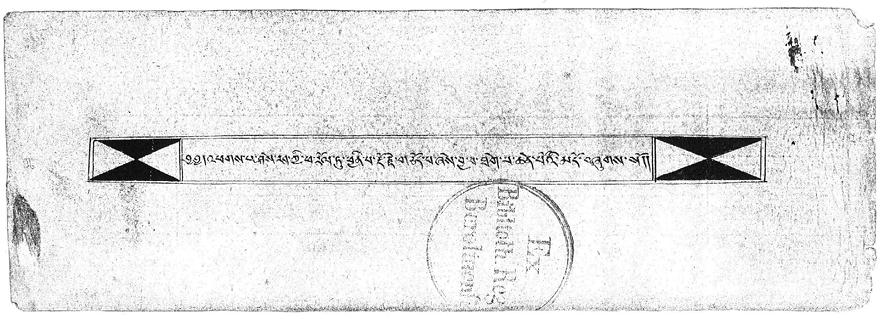 ༄༅། །འཕགས་པ་ཤེས་རབ་ཀྱི་ཕ་རོལ་ཏུ་ཕྱིན་པ་རྡོ་རྗེ་གཅོད་པ་ཞེས་བྱ་བ་ཐེག་པ་ཆེན་པོའི་མདོ་བཞུགས་སོ།།
Ex
Biblioth. Reg.
Berolinens